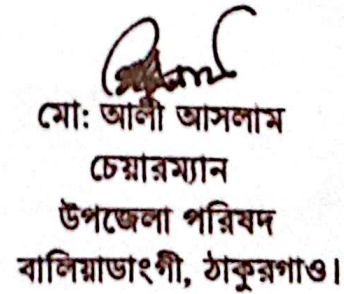 মো: আলী আসলাম
চেয়ারম্যান
উপজেলা পরিষদ
বালিয়াডাংগী, ঠাকুরগাও।